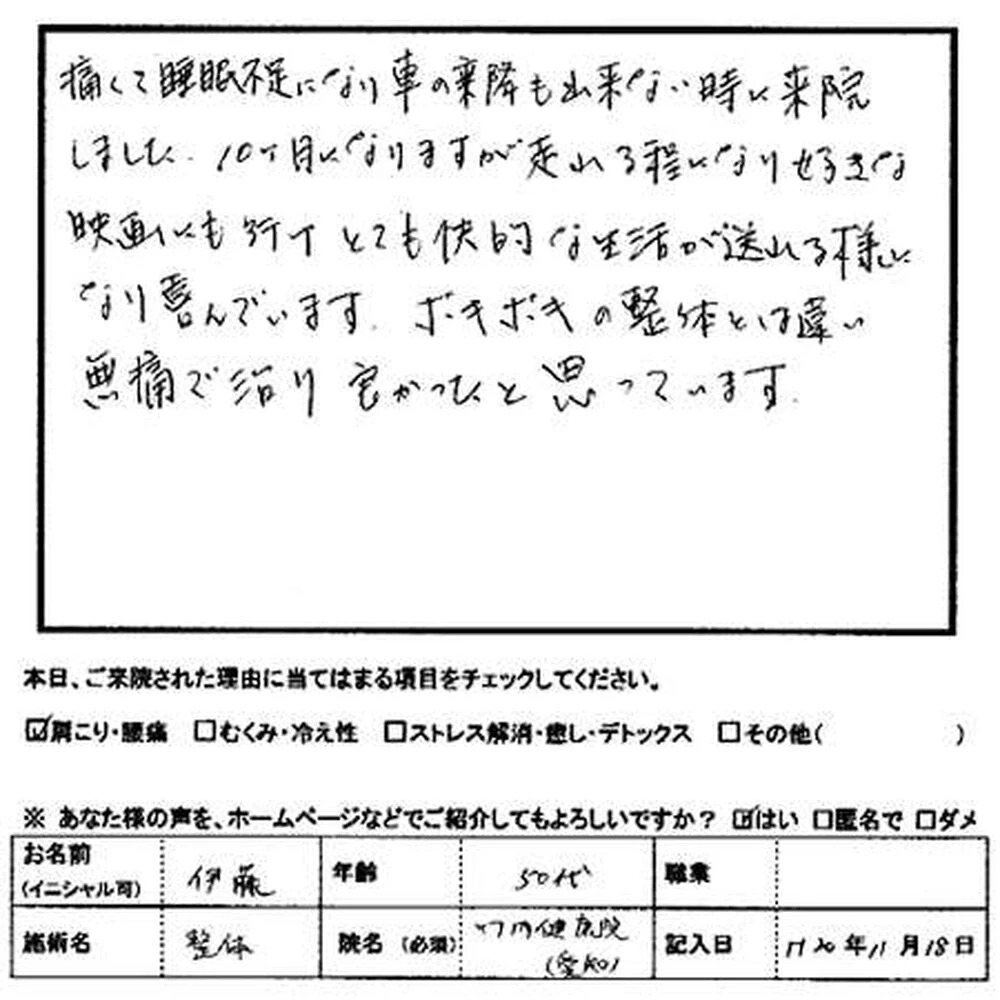 痛くて睡眠不足になり車の乗降も出来ない時に来院
しました. 10ヶ月になりますが走れる程になり好きな
映画にも行け とても快的な生活が送れる様に
なり喜んでいます. ボキボキの整体とは違い
無痛で治り 良かったと思っています.
本日、ご来院された理由に当てはまる項目をチェックしてください。
☑肩こり・腰痛 □むくみ・冷え性 □ストレス解消・癒し・デトックス □その他( )
※ あなた様の声を、ホームページなどでご紹介してもよろしいですか? ☑はい □匿名で □ダメ
お名前 (イニシャル可) 伊藤 年齢 50代 職業
施術名 整体 院名 (必須) 健康院 (愛知) 記入日 H20年11月18日